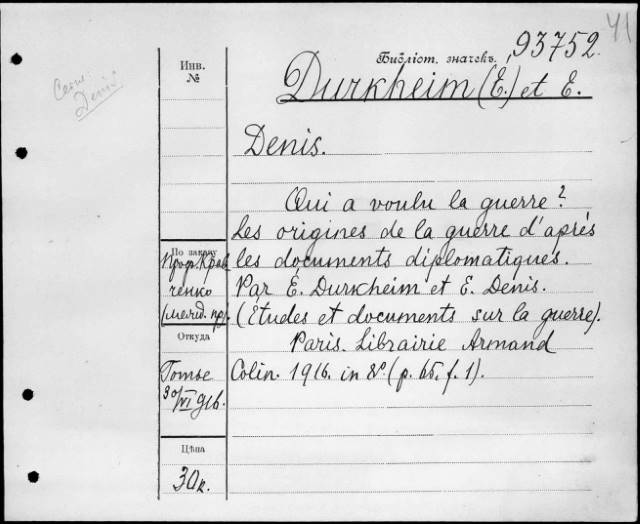 41
Библіот. значекъ. 93752.
Durkheim (É.) et E.
Denis.
Qui a voulu la guerre?
Les origines de la guerre d'après
les documents diplomatiques.
Par É. Durkheim et E. Denis.
(Études et documents sur la guerre).
Paris. Librairie Armand
Colin. 1916. in 8º. (p. 65, f. 1).
Инв.
№
По заказу
Проф. Крав
ченко
Откуда
30/VI 916.
Цѣна
30к.
Denis